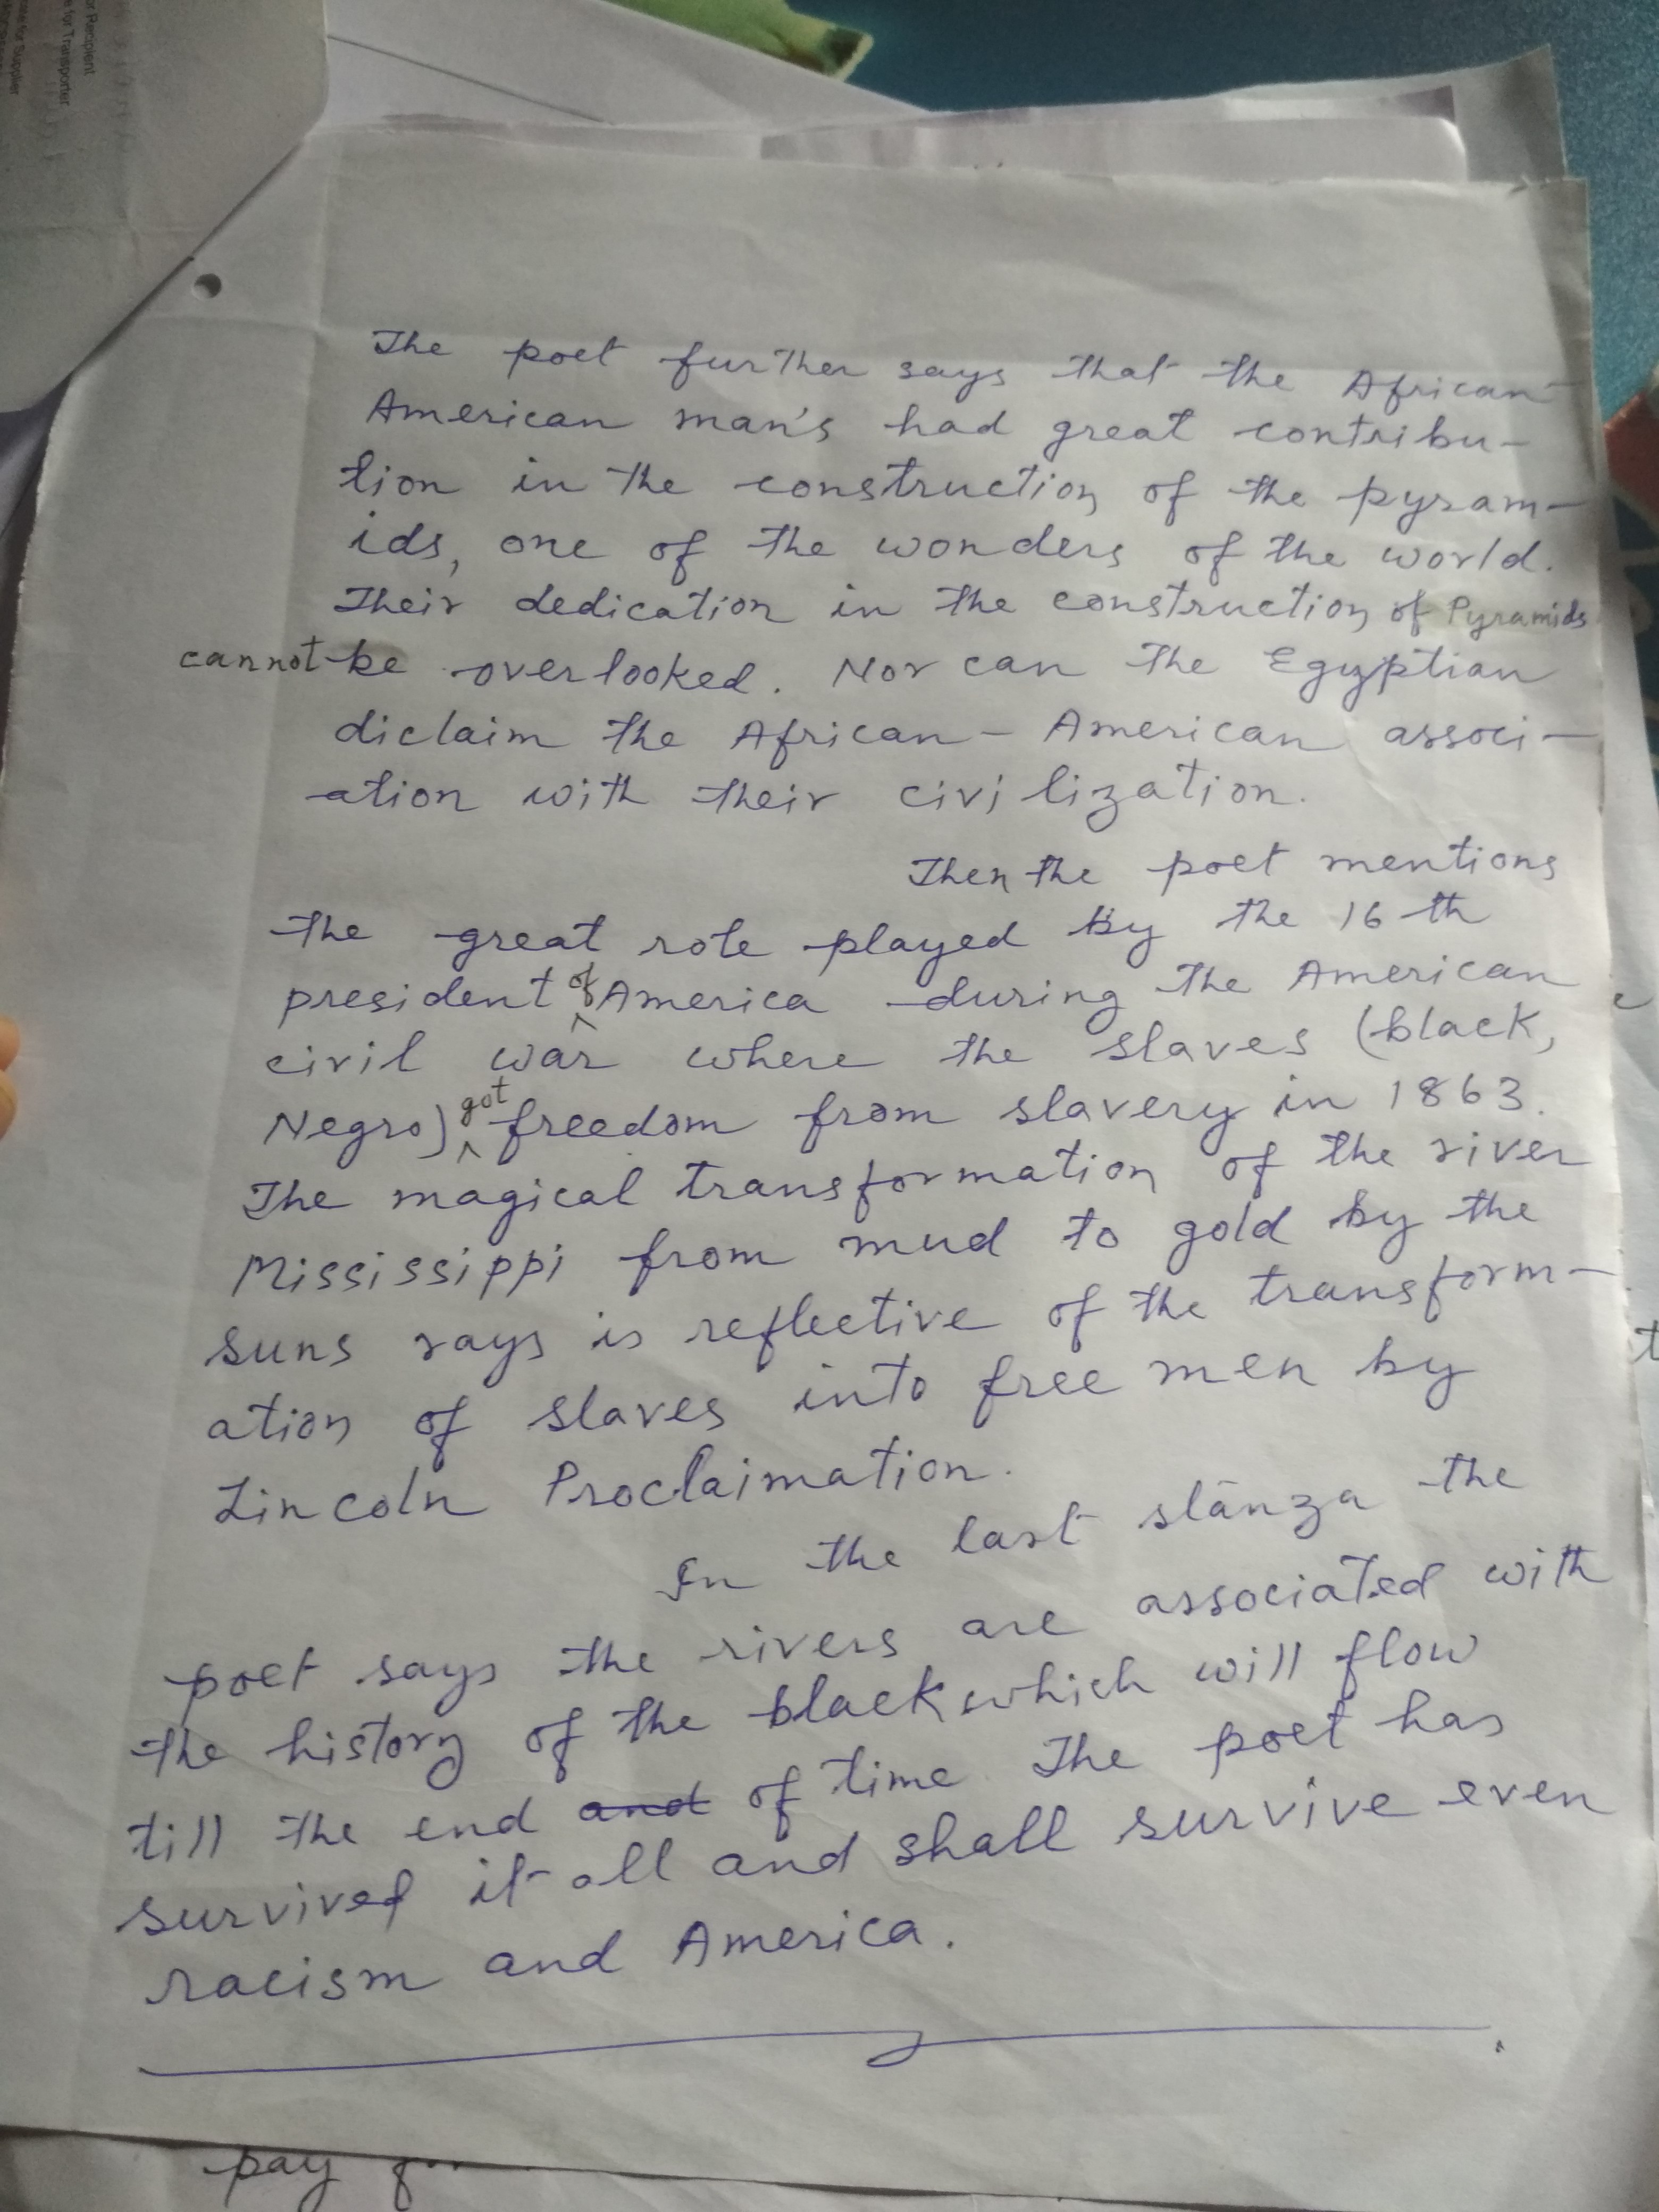 or Recipient
e for Transporter
for Supplier
The poet further says that the African
American man's had great contribu-
tion in the construction of the pyram-
ids, one of the wonders of the world.
Their dedication in the construction of Pyramids
cannot be overlooked. Nor can the Egyptian
diclaim the African-American associ-
ation with their civilization.
Then the poet mentions
the great role played by the 16th
president of America during the American
civil war where the slaves (black,
Negro) got freedom from slavery in 1863.
The magical transformation of the river
Mississippi from mud to gold by the
suns rays is reflective of the transform-
ation of slaves into free men by
Lincoln Proclaimation.
In the last stanza the
poet says the rivers are associated with
the history of the black which will flow
till the end and of time The poet has
survived it all and shall survive even
racism and America.
pay